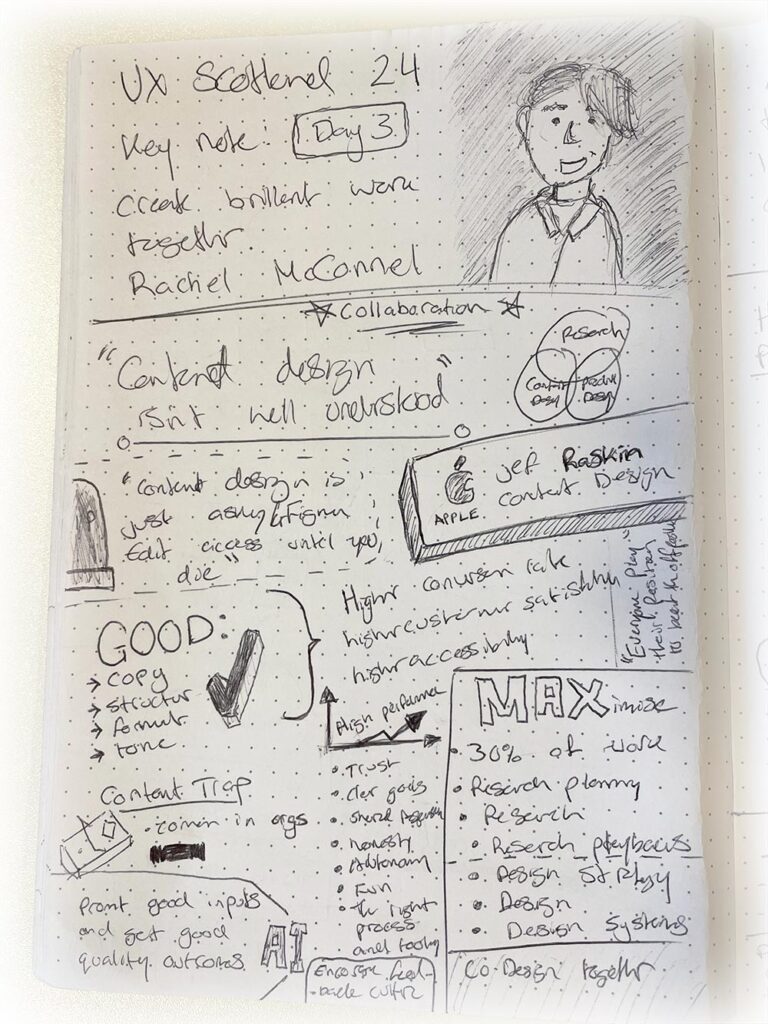 UX Scotland 24
Key note: Day 3
Create brillent work
together.
Rachel McConnel
Collaboration
"Content design
isn't well understood"
Research
Content
Design
Product
Design
"Content design is
just asking Figma
Edit access until you
die"
APPLE
Jef Raskin
Content Design
Higher conversion rate
higher customer satisfaction
higher accessibility
"Everyone play
their position
GOOD:
→ copy
→ structur
→ format
→ tone
High performance
• Trust
• Clear goals
• Shared
• honesty
• Autonomy
• Fun
• the right
process
and tooling
MAXimise
• 30% of work
• Research planning
• Research
• Research playbacks
• Design Strategy
• Design
• Design Systems
Content Trap
• common in orgs
Promt good inputs
and get good
quality outcomes
AI
Encorage feed-
back culture
Co Design together